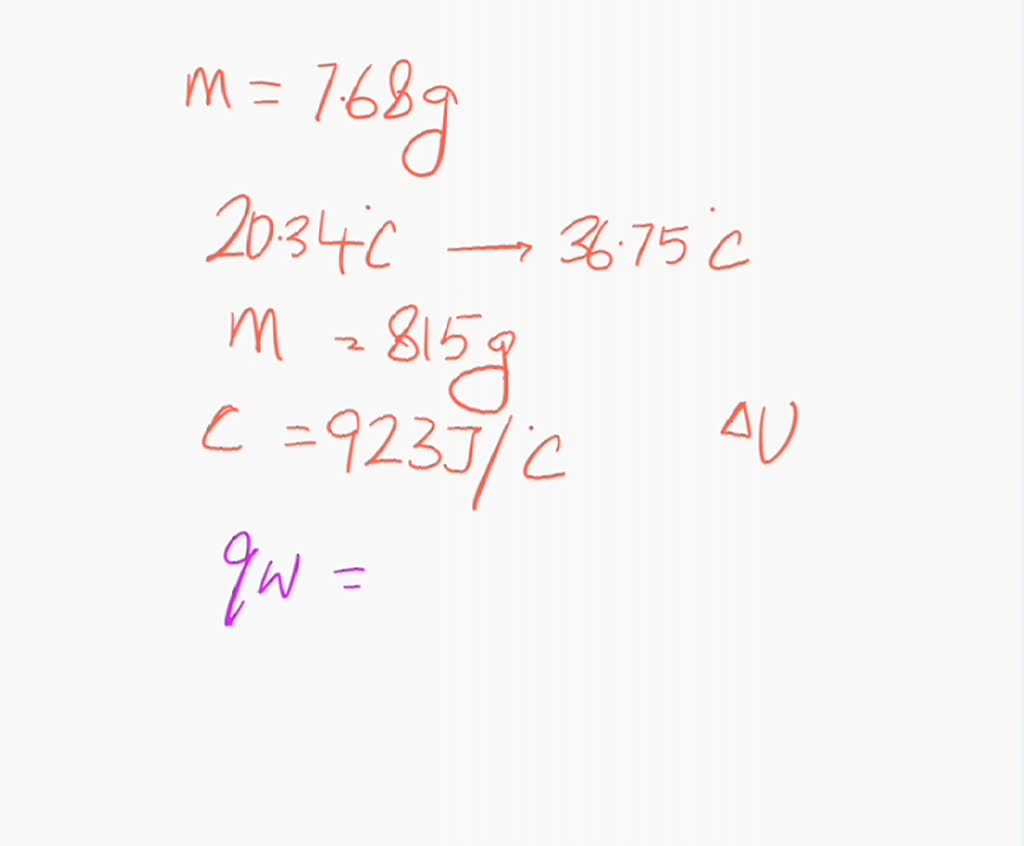 m = 7.68g
20.34°C → 36.75°C
m = 815g
C = 923J/°C ΔU
qw =